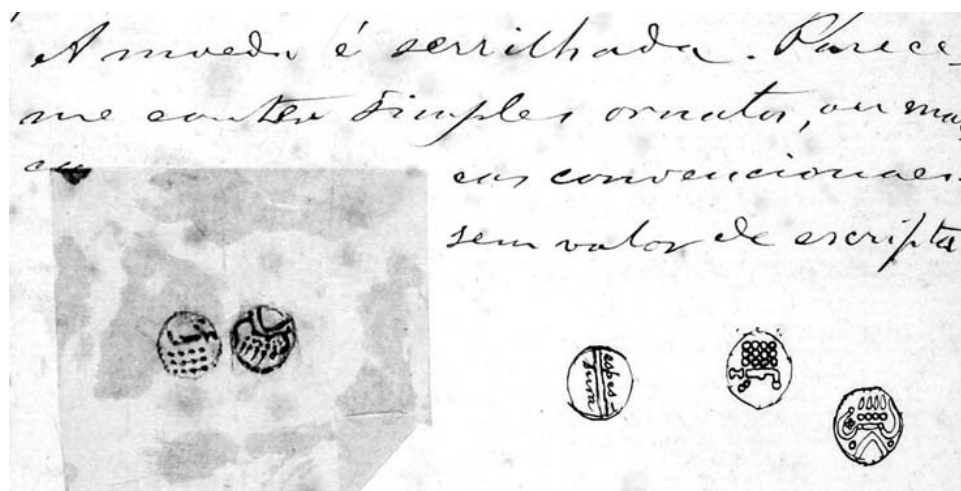 A moeda é serrilhada. Parece-
me conter simples ornatos, ou mar
cas convencionaes.
sem valor de escripta
espes-
sura